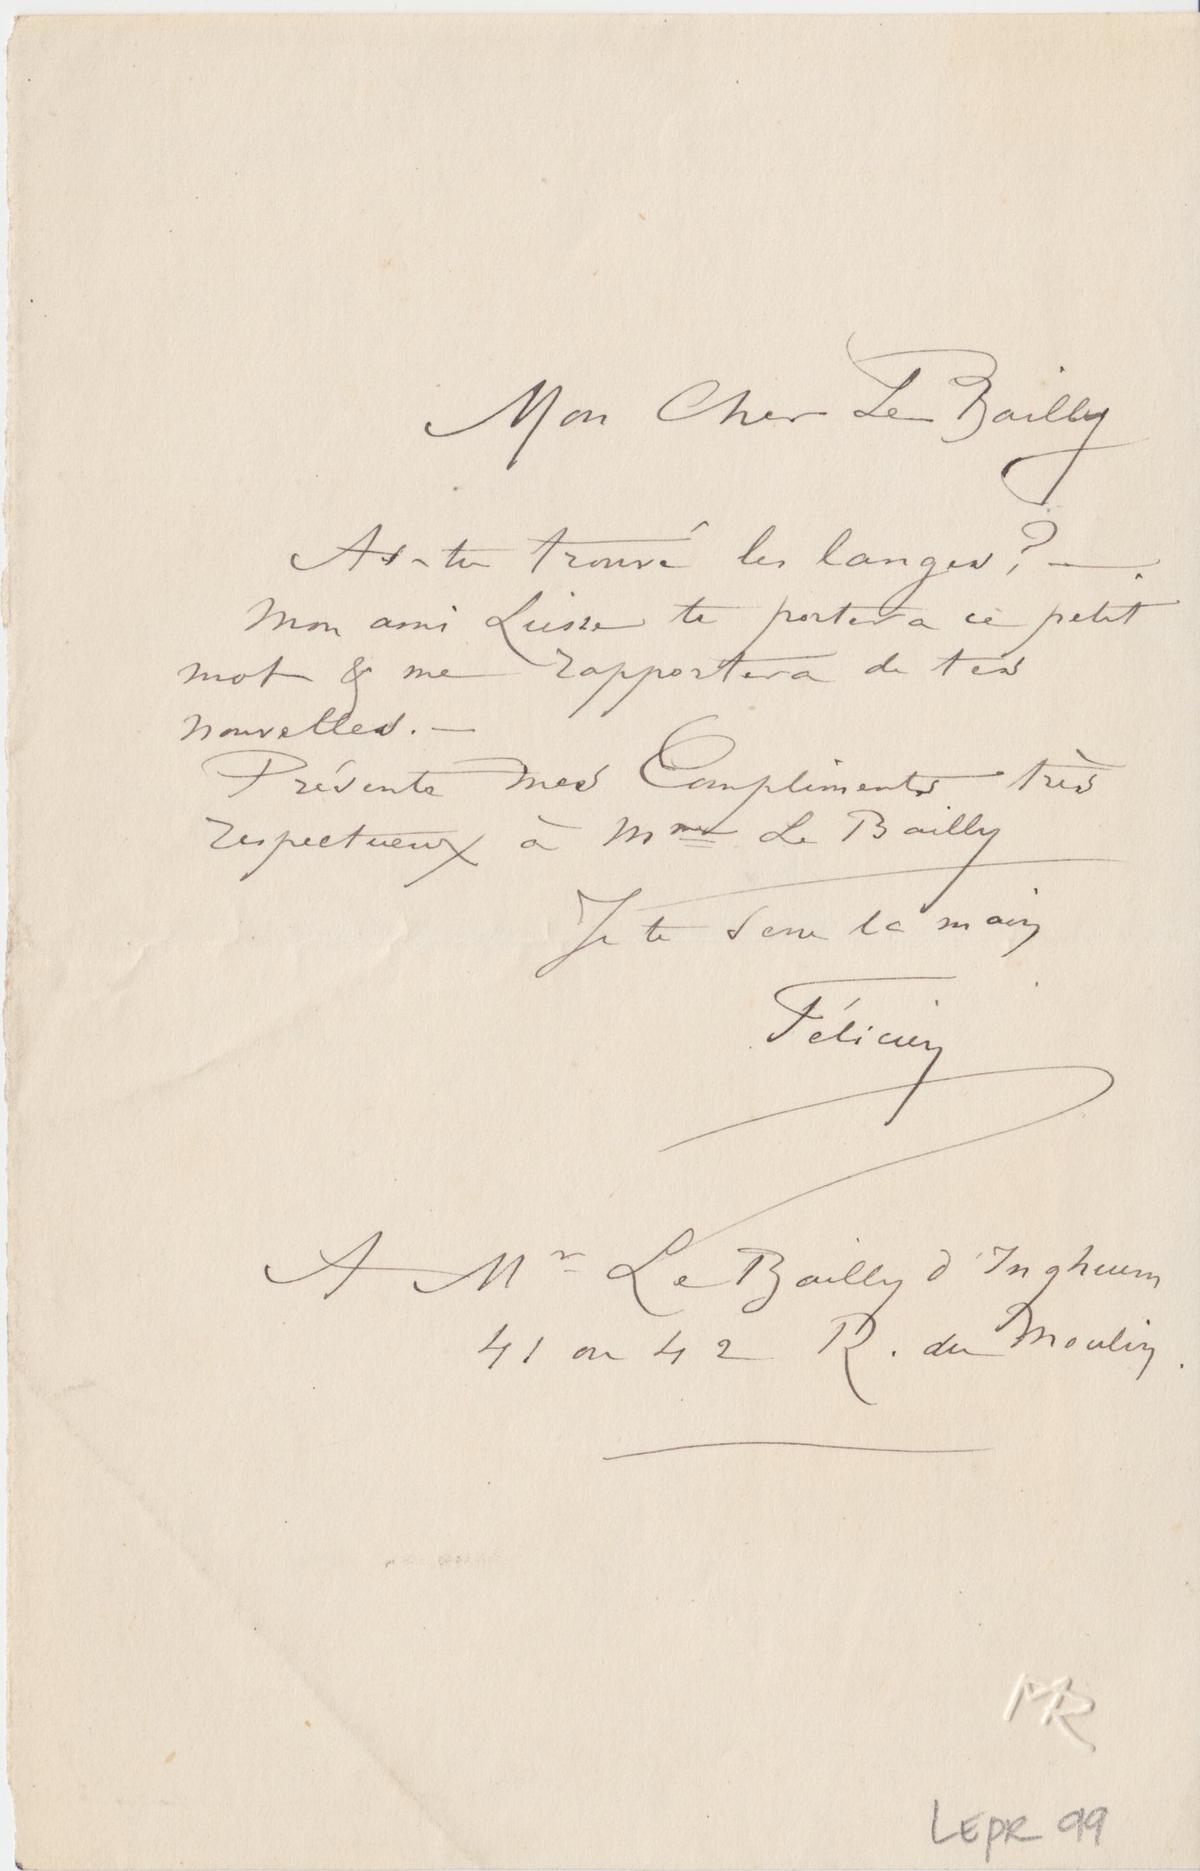 Mon Cher Le Bailly
As-tu trouvé les langes? —.
Mon ami te portera ce petit
mot & me rapportera de tes
nouvelles. —
Présente mes Compliments très
respectueux à Mme Le Bailly
Je te serre la main
Félicien
A Mr Le Bailly d'Inghuem
41 ou 42 R. du Moulin.
MR
LEPR 99